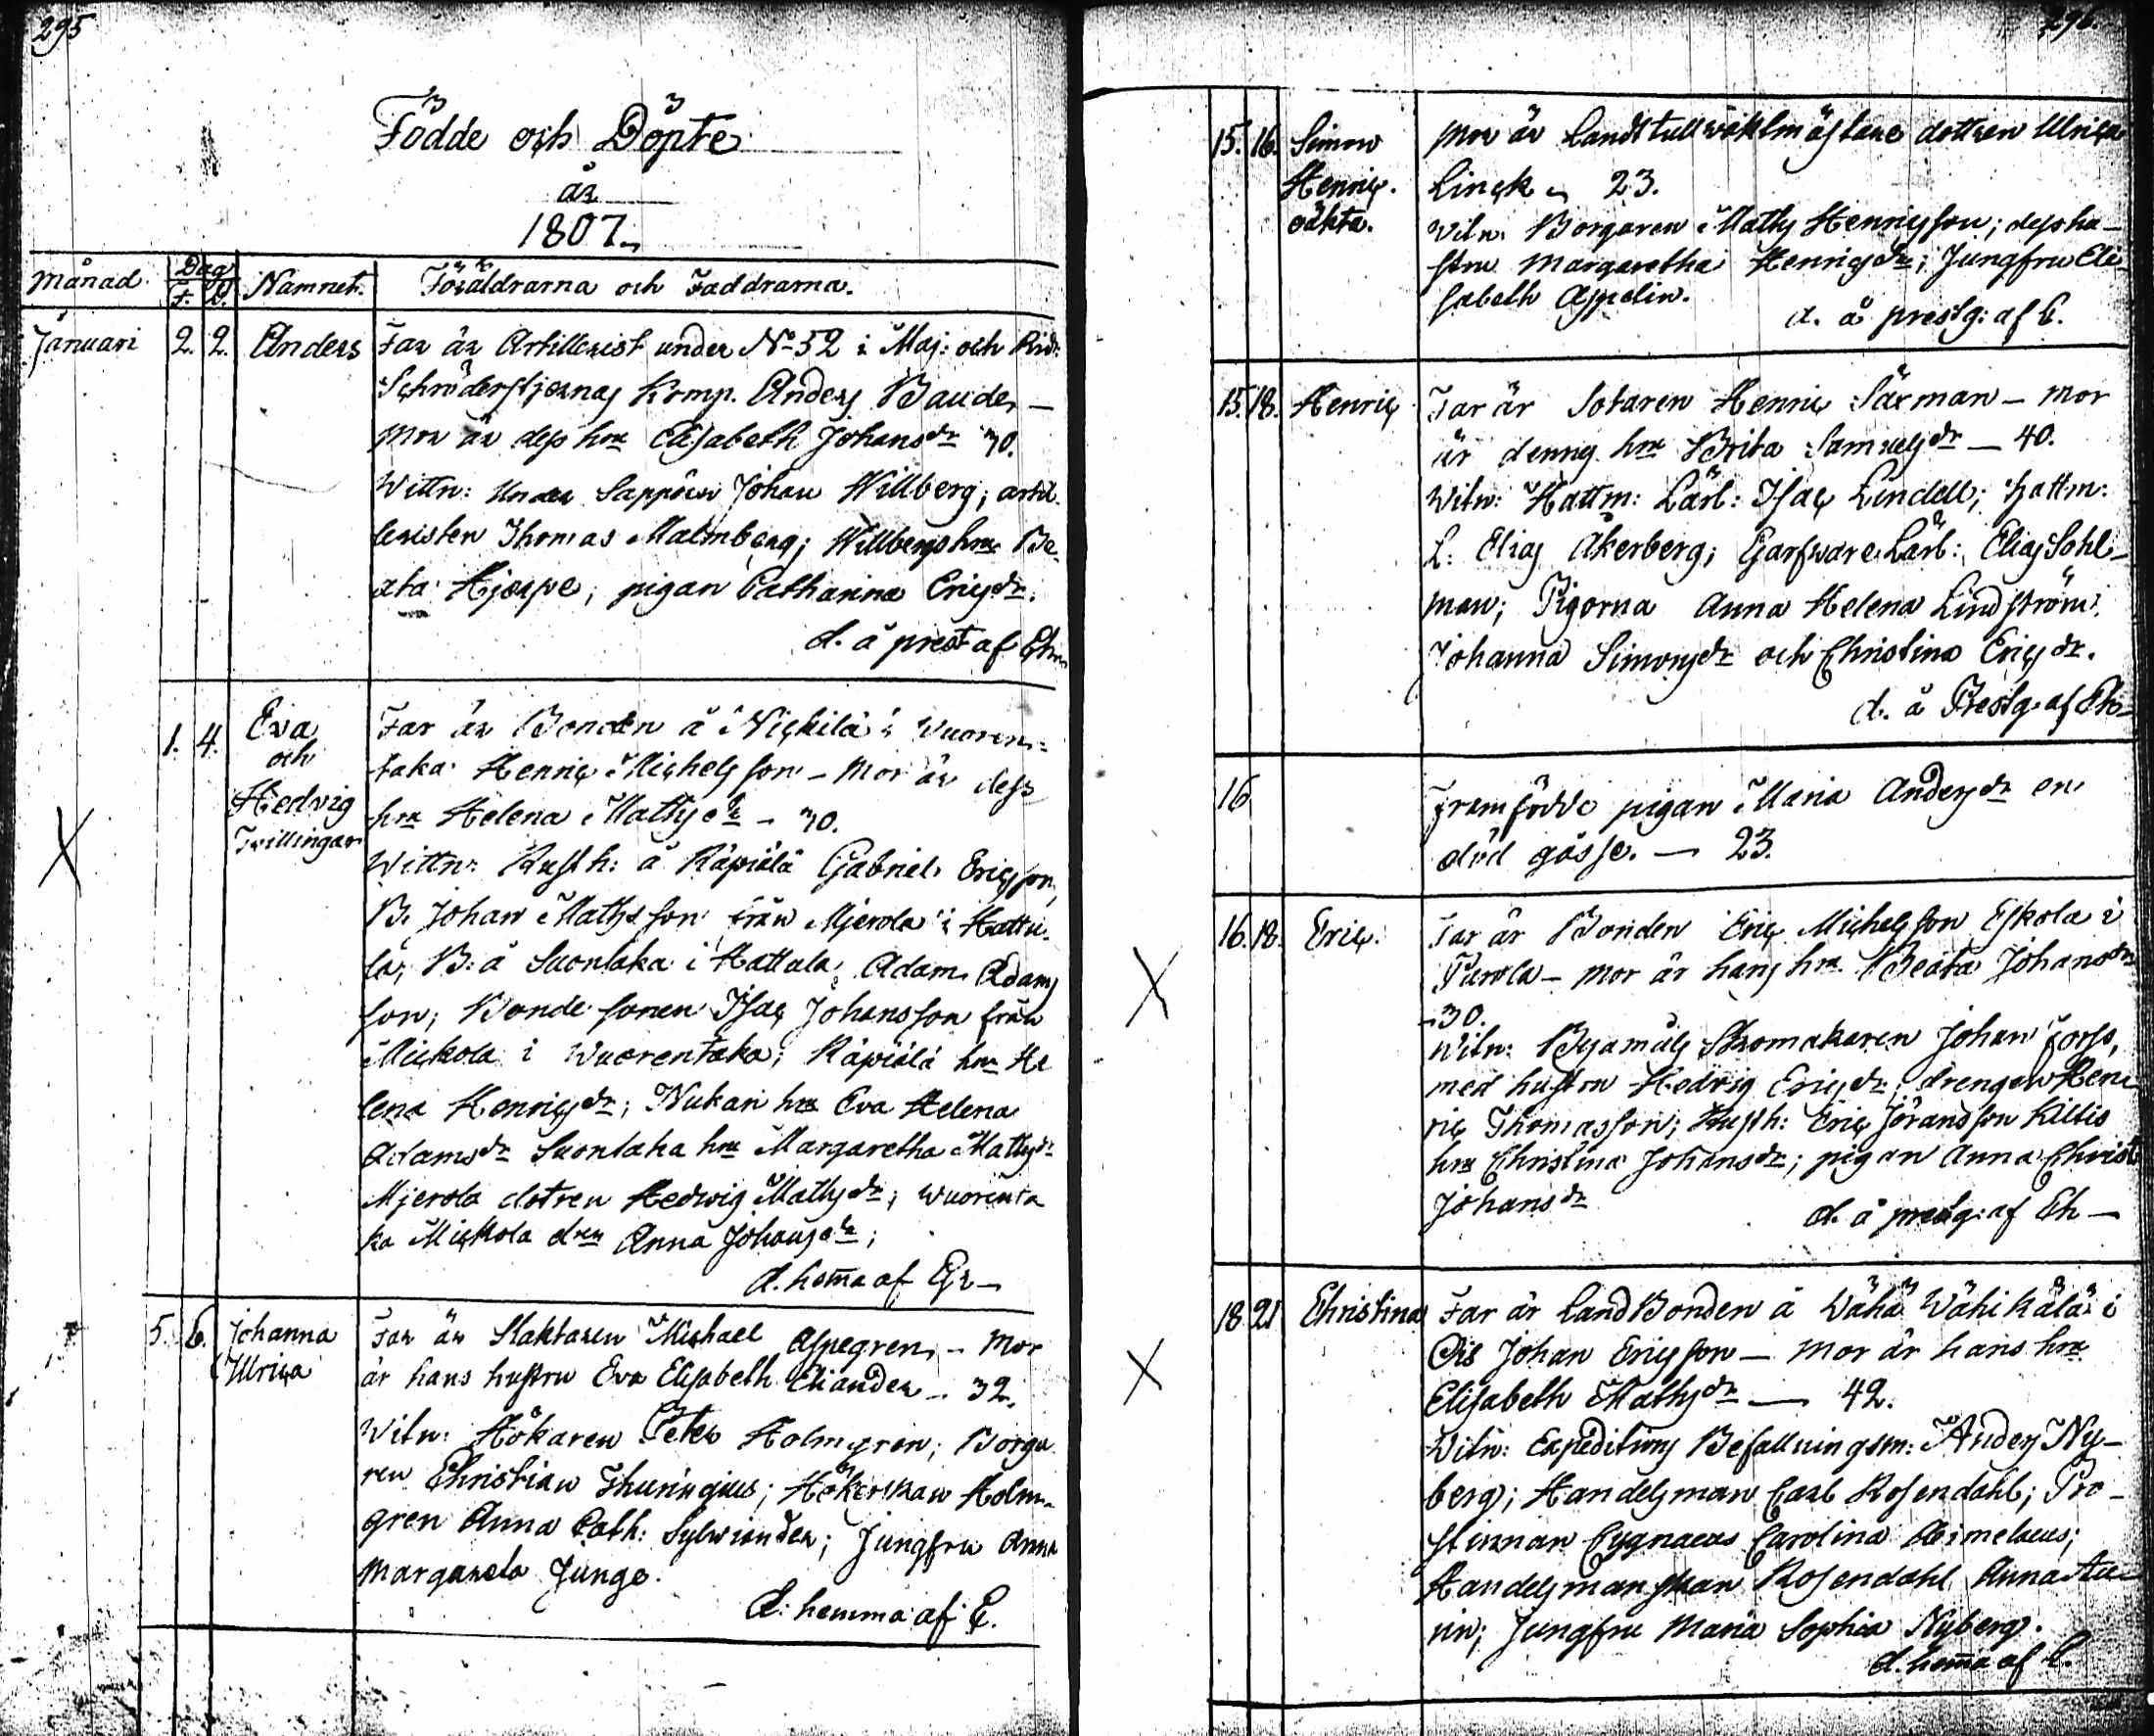 295
Födde och Döpte
år
1807.
Månad
Dag
F. D.
Namnet.
Föräldrarna och Faddrarna.
Januari
2. 2.
Anders
Far är Artillerist under No 52 i Maj: och Ridd:
Schröderstjernas Komp. Anders Bauder —
Mor är dess hru Elisabeth Johansdr 30.
Wittn: Under Sappören Johan Willberg; artil-
leristen Thomas Malmberg; Willbergs hru Be-
ata Hjerpe; pigan Catharina Ericsdr.
d. å prest af Ehn
1. 4.
Eva
och
Hedvig
Tvillingar
Far är Bonden å Nickilä i Wuoren-
taka Henric Michelsson – Mor är dess
hru Helena Mattsdr – 30.
Wittn: Rusth: å Räpiälä Gabriel Ericsson,
B. Johan Mathsson från Mjerola i Hattu-
la; B: å Suontaka i Hattula Adam Adams
son; Bonde sonen Isac Johansson från
Mickola i Wuorentaka; Räpiälä hru He
lena Henricsdr; Nukari hru Eva Helena
Adamsdr Suontaka hru Margaretha Mattsdr
Mjerola dotren Hedwig Mathsdr; Wuorenta
ka Mickola dren Anna Johansdr;
d. hema af Gr–
5. 6.
Johanna
Ulrica
Far är Slaktaren Michael Aspegren – Mor
är hans hustru Eva Elisabeth Eliander – 32.
Witn: Hökaren Peter Holmgren; Borga
ren Christian Thuringius; Hökerskan Holm-
gren Anna Cath: Sylviander; Jungfru Anna
Margareta Junge.
d: hemma af E.
296.
15. 16.
Simon
Henric.
oäkta.
Mor är Landttullwaktmästare dottren Ulrica
Linck – 23.
Witn: Borgaren Matts Henricsson; dess hu-
stru Margaretha Henricsdr; Jungfru Eli-
sabeth Appelin.
d. å prestg: af E.
15. 18.
Henric
Far är Sotaren Henric Särman – Mor
är dennes hru Brita Samuelsdr – 40.
Witn: Hattm: Lärl: Isac Lindell; Hattm:
L: Elias Åkerberg; Garfware Lärl: Elias Sohl-
man; Pigorna Anna Helena Lindström
Johanna Simonsdr och Christina Ericsdr.
d. å Prestg. af Eh–
16
Framfödde pigan Maria Andersdr en
död gosse. – 23.
16. 18.
Eric.
Far är Bonden Eric Michelsson Eskola i
Parola – Mor är hans hru Beata Johansdr
– 30.
Witn: Byamåls Skomakaren Johan Forss,
med hustru Hedvig Ericsdr; drengen Hen-
ric Thomasson; Rusth: Eric Jöransson Killis
hru Christina Johansdr; pigan Anna Christ
Johansdr
d. å prestg: af Eh –
18 21
Christina
Far är LandBonden å Wähä Wähikälä i
Ois Johan Ericsson – Mor är hans hru
Elisabeth Mathsdr — 42.
Witn: Expeditions Befallningsm: Anders Ny-
berg; Handelsman Carl Rosendahl; Pro-
stinnan Cygnaeus Carolina Heimelaeus;
Handelsmanskan Rosendahl Anna
Jungfru Maria Sophia Nyberg.
d. hema af E.